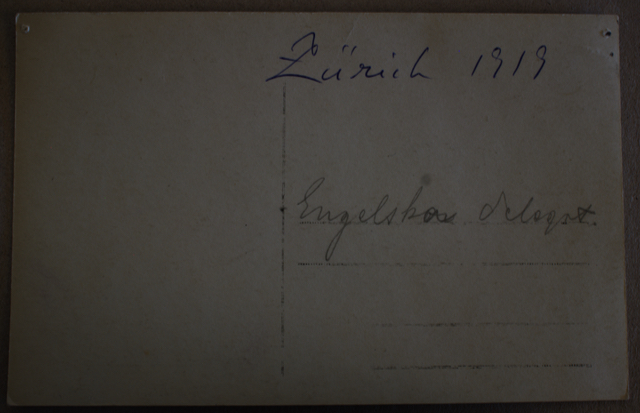 Zürich 1919
Engelskas delegat.